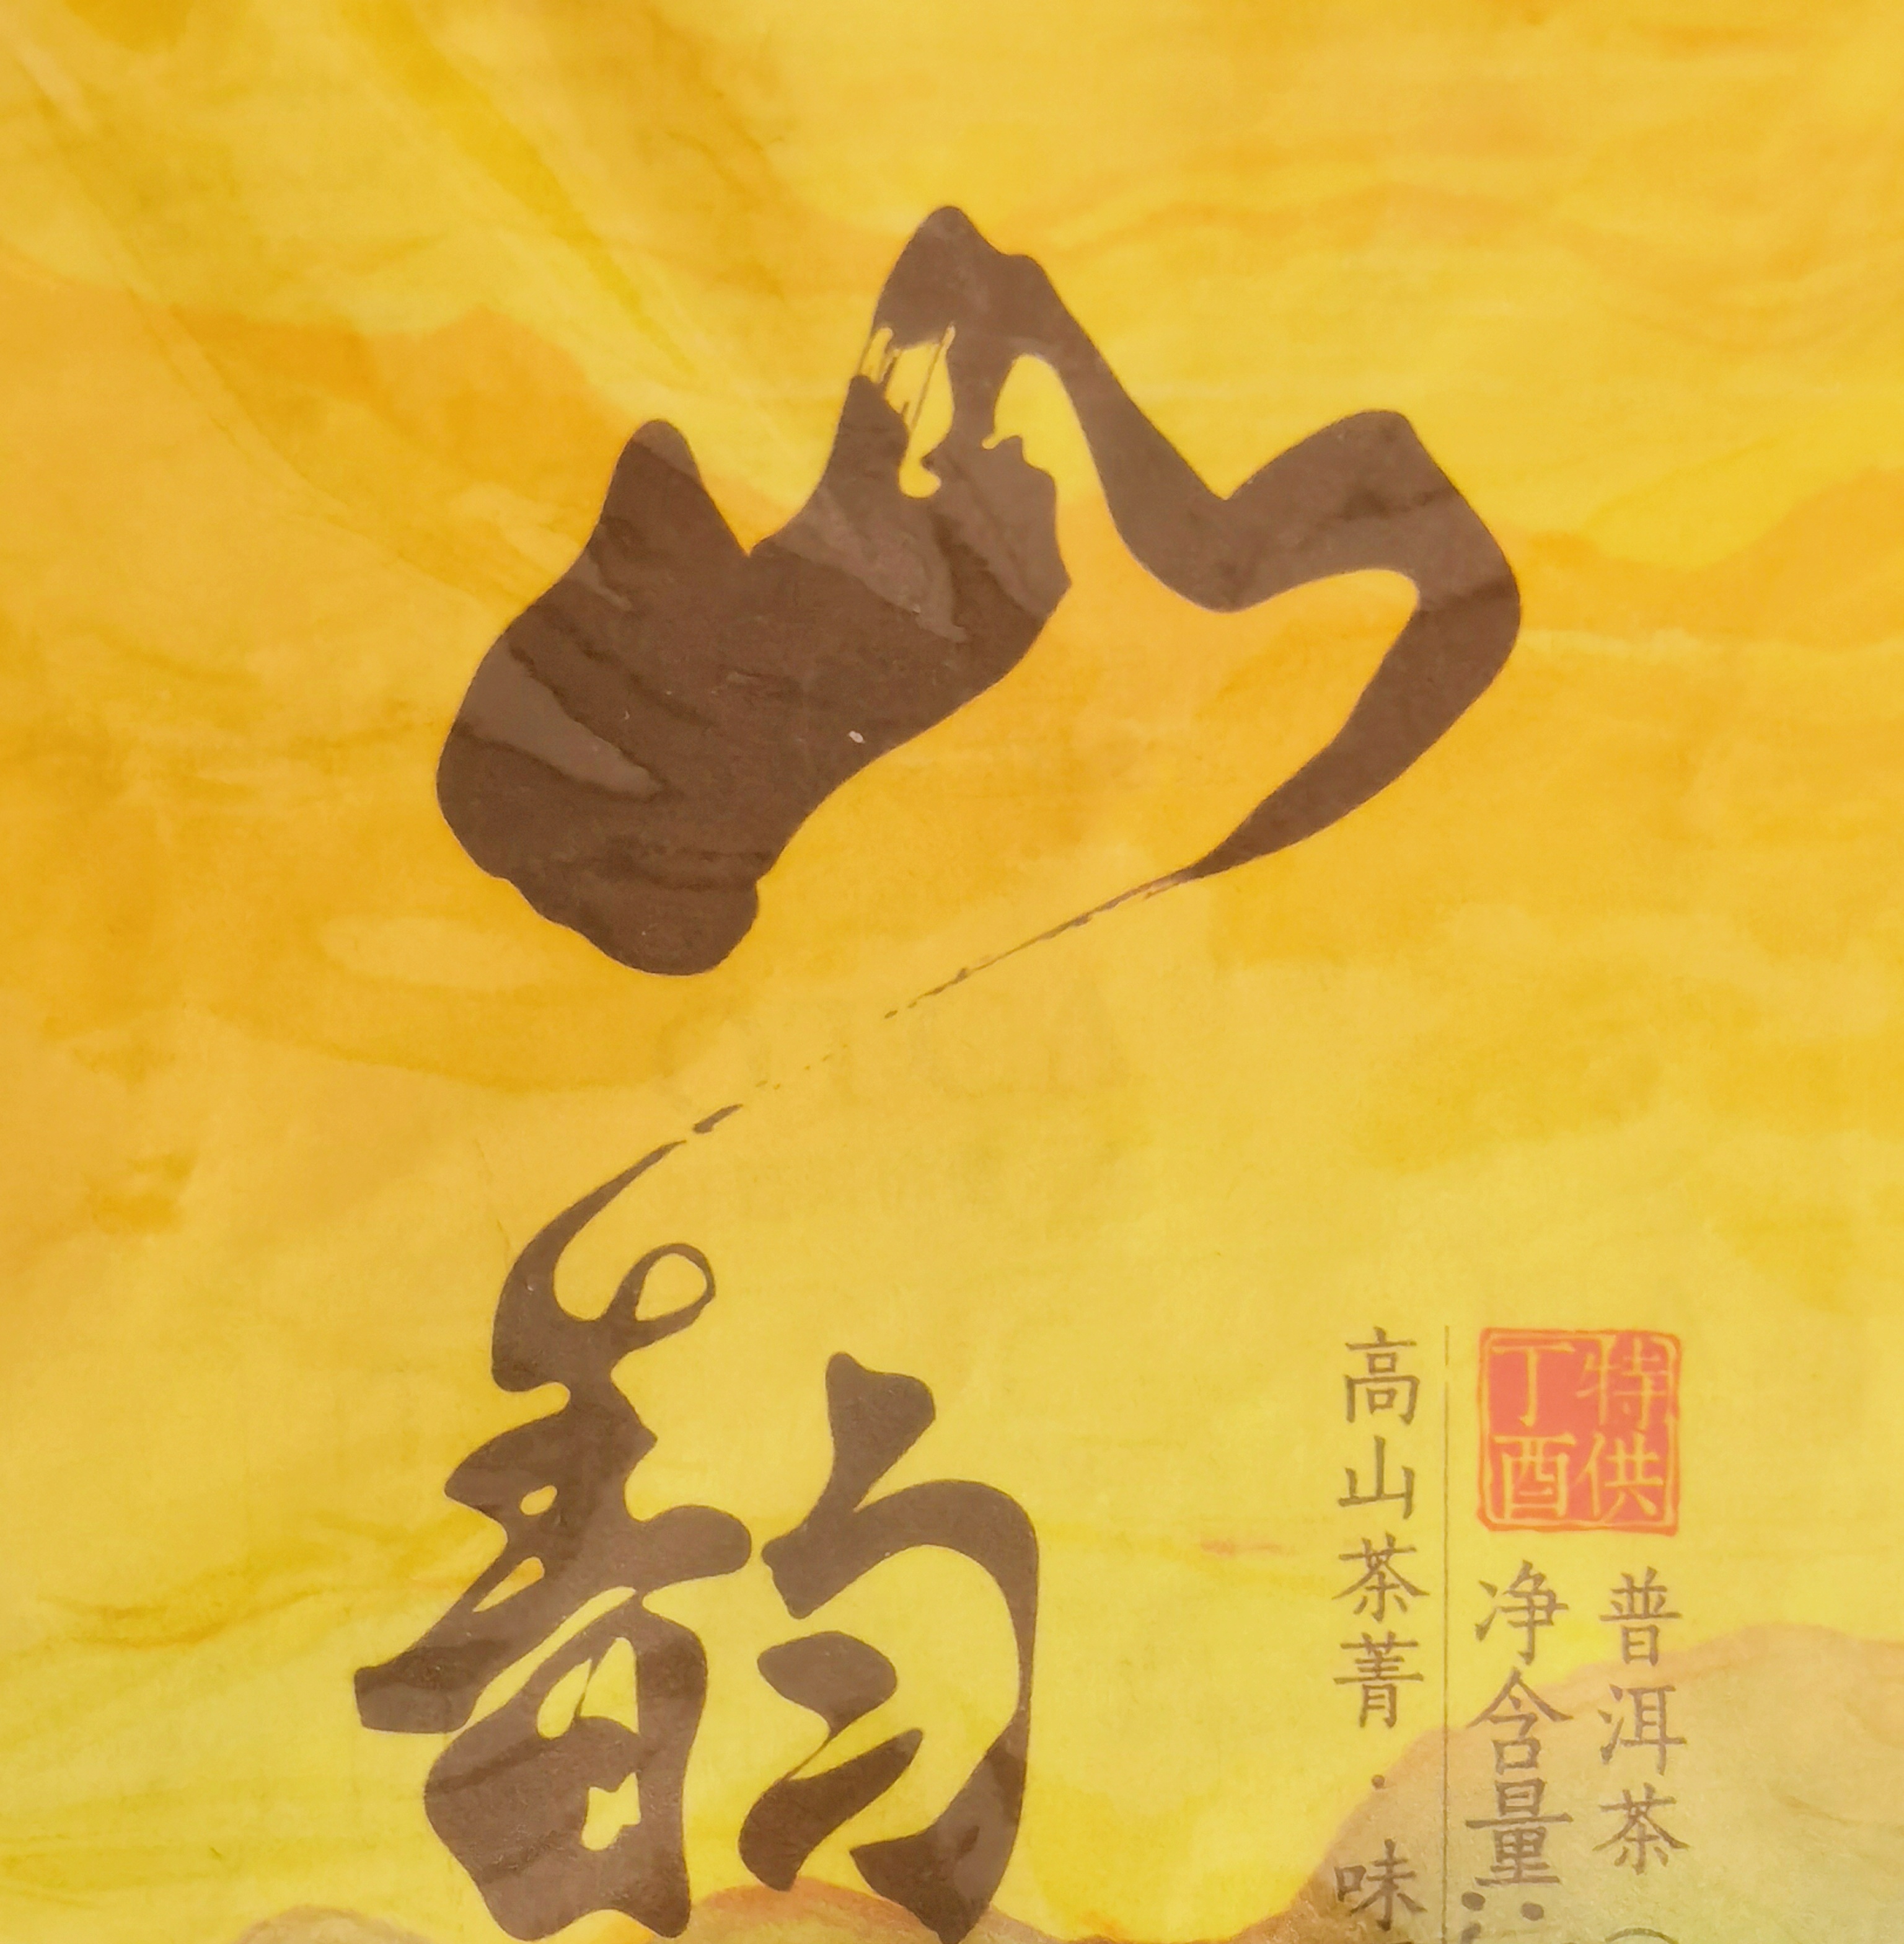 山韵
特供
丁酉
普洱茶（
净含量：
高山茶菁·味